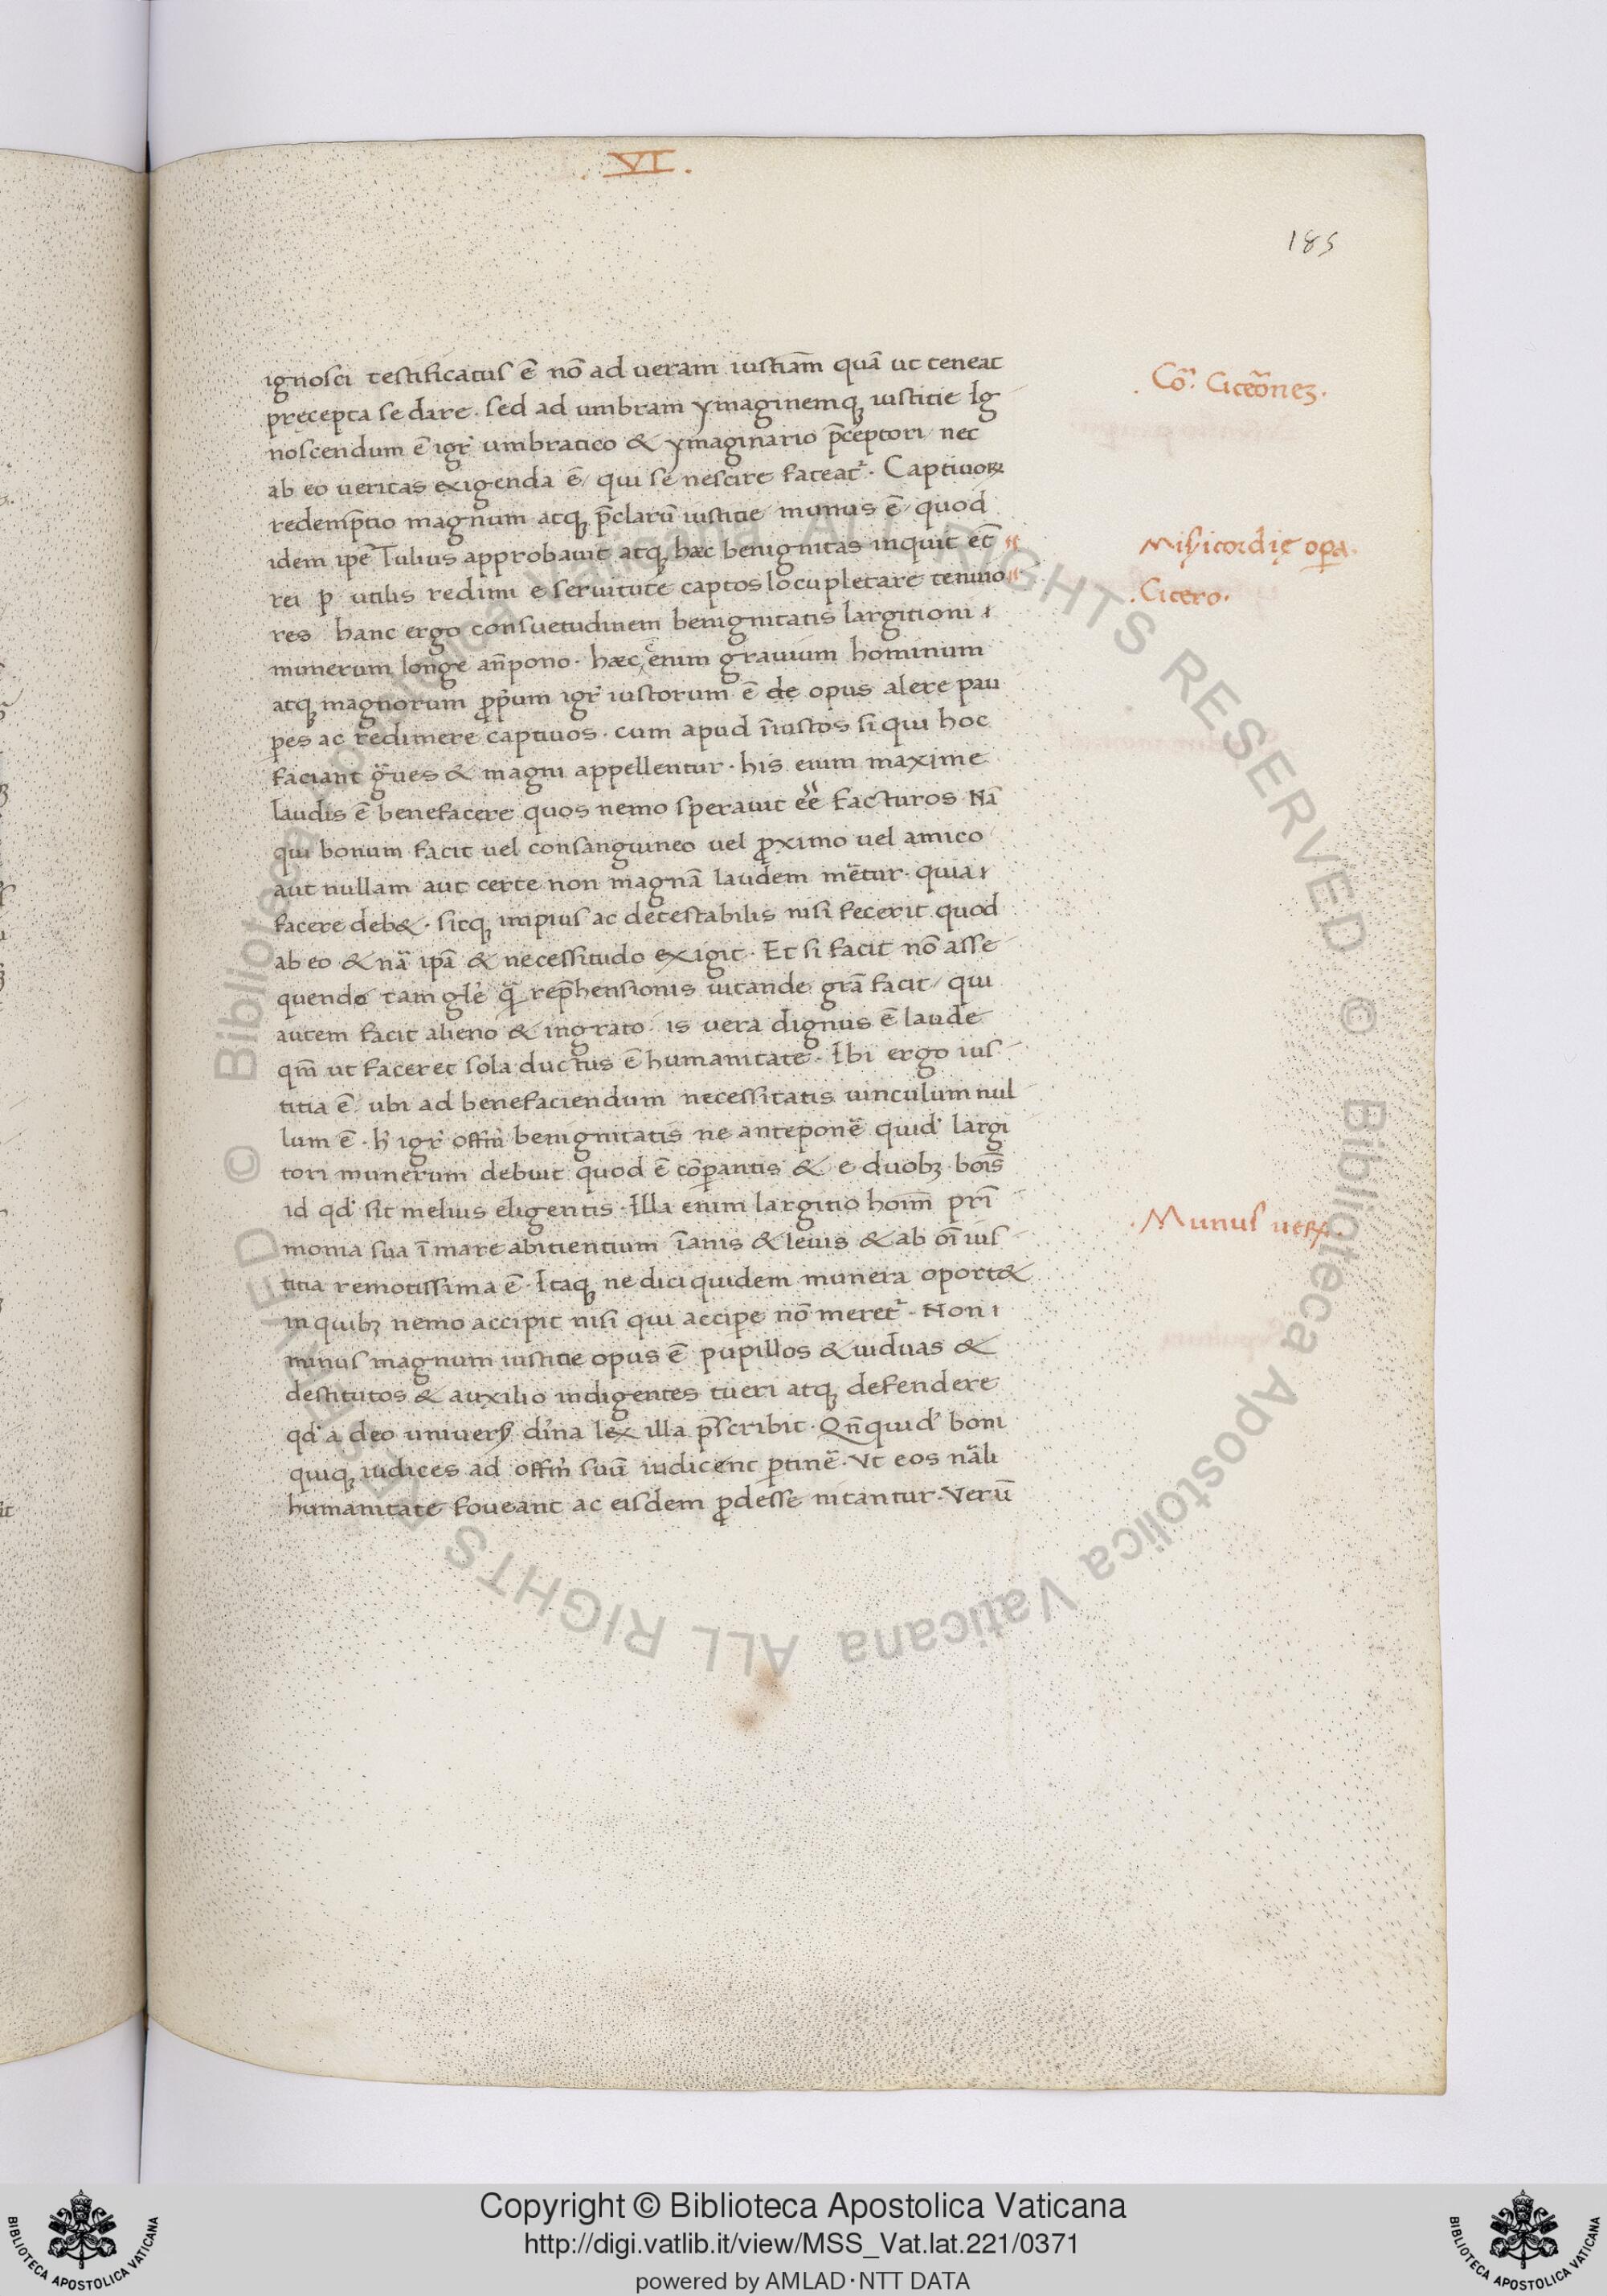 .VI.
185
ignosci testificatus ē nō ad ueram iustiām quā ut teneat
pręcepta se dare. sed ad umbram ymaginemq; iustitie Ig
noscendum ē igr̄ umbratico & ymaginario p̄ceptori / nec
ab eo ueritas exigenda ē / qui se nescire fateat᷑. Captiuoꝝ
redemp̄tio magnum atq; p̄clarū iustitie munus ē / quod
idem ip̄e Tulius approbauit atq; hæc benignitas inquit et̄
rei p̄ utilis redimi e seruitute captos locupletare tenuio
res hanc ergo consuetudinem benignitatis largitioni
munerum longe an̄pono. hæc enim grauium hominum
atq; magnorum ꝓp̄um igr̄ iustorum ē de opus alere pau
pes ac redimere captiuos. cum apud īiustos si qui hoc
faciant g̃ues & magni appellentur. his enim maxime
laudis ē benefacere quos nemo sperauit eē facturos Nā
qui bonum facit uel consanguineo uel ꝓximo uel amico
aut nullam aut certe non magnā laudem mētur. quia
facere deb&. sitq; impius ac detestabilis nisi fecerit quod
ab eo & nā ipā & necessitudo exigit. Et si facit nō asse
quende tam glē q̄ rep̄hensionis uitande grā facit / qui
autem facit alieno & ingrato. is uera dignus ē laude
qm̄ ut faceret sola ductus ē humanitate. Ibi ergo ius
titia ē. ubi ad benefaciendum necessitatis uinculum nul
lum ē. h̄ igr̄ offm̄ benignitatis ne anteponē quid' largi
tori munerum debuit quod ē cōparantis & e duobꝫ bois̄
id qd' sit melius eligentis. Illa enim largitio hoim̄ pr̄i
monia sua ī mare abitientium īanis & leuis & ab oī ius
titia remotissima ē. Itaq; ne dici quidem munera oport&
in quibꝫ nemo accipit nisi qui accipe nō meret᷑. Non
minus magnum iustitie opus ē pupillos & uiduas &
destitutos & auxilio indigentes tueri atq; defendere
qd' a deo uniuers' di'na lex illa p̄scribit. Qn̄quid' boni
quiq; iudices ad offm̄ suū iudicent ꝑtinē. Vt eos nāli
humanitate foueant ac eisdem ꝓdesse nitantur. Verū
. Cō. Cicerōnez.
Misicordię oꝑa.
. Cicero.
. Munus ueꝝ.
Copyright © Biblioteca Apostolica Vaticana
http://digi.vatlib.it/view/MSS_Vat.lat.221/0371
powered by AMLAD·NTT DATA
BIBLIOTECA APOSTOLICA VATICANA
BIBLIOTECA APOSTOLICA VATICANA
© Biblioteca Apostolica Vaticana ALL RIGHTS RESERVED © Biblioteca Apostolica Vaticana ALL RIGHTS RESERVED